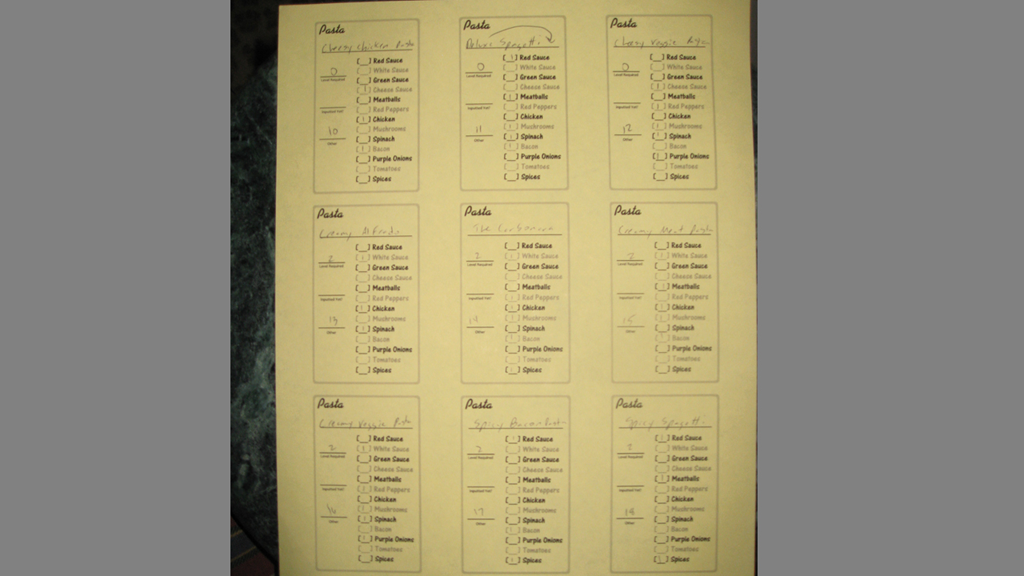 Pasta
Cheesy Chicken Pasta
0
Level Required
Imported Val?
10
Other
[ ] Red Sauce
[ ] White Sauce
[ ] Green Sauce
[1] Cheese Sauce
[ ] Meatballs
[ ] Red Peppers
[1] Chicken
[ ] Mushrooms
[ ] Spinach
[1] Bacon
[ ] Purple Onions
[ ] Tomatoes
[ ] Spices
Pasta
Deluxe Spagetti
0
Level Required
11
Other
[1] Red Sauce
[ ] White Sauce
[ ] Green Sauce
[ ] Cheese Sauce
[1] Meatballs
[ ] Red Peppers
[ ] Chicken
[1] Mushrooms
[1] Spinach
[ ] Bacon
[ ] Purple Onions
[ ] Tomatoes
[ ] Spices
Pasta
Cheesy Veggie Pasta
0
Level Required
12
Other
[ ] Red Sauce
[ ] White Sauce
[ ] Green Sauce
[1] Cheese Sauce
[ ] Meatballs
[1] Red Peppers
[ ] Chicken
[1] Mushrooms
[1] Spinach
[ ] Bacon
[ ] Purple Onions
[ ] Tomatoes
[ ] Spices
Pasta
Creamy Alfredo
2
Level Required
13
Other
[ ] Red Sauce
[1] White Sauce
[ ] Green Sauce
[ ] Cheese Sauce
[ ] Meatballs
[ ] Red Peppers
[1] Chicken
[ ] Mushrooms
[1] Spinach
[ ] Bacon
[ ] Purple Onions
[ ] Tomatoes
[ ] Spices
Pasta
The Carbonara
2
Level Required
14
Other
[ ] Red Sauce
[1] White Sauce
[ ] Green Sauce
[ ] Cheese Sauce
[ ] Meatballs
[ ] Red Peppers
[ ] Chicken
[1] Mushrooms
[ ] Spinach
[1] Bacon
[ ] Purple Onions
[ ] Tomatoes
[1] Spices
Pasta
Creamy Meat Pasta
2
Level Required
15
Other
[ ] Red Sauce
[1] White Sauce
[ ] Green Sauce
[ ] Cheese Sauce
[1] Meatballs
[ ] Red Peppers
[1] Chicken
[ ] Mushrooms
[ ] Spinach
[1] Bacon
[ ] Purple Onions
[ ] Tomatoes
[ ] Spices
Pasta
Creamy Veggie Pasta
2
Level Required
16
Other
[ ] Red Sauce
[1] White Sauce
[ ] Green Sauce
[ ] Cheese Sauce
[ ] Meatballs
[1] Red Peppers
[ ] Chicken
[1] Mushrooms
[1] Spinach
[ ] Bacon
[ ] Purple Onions
[ ] Tomatoes
[ ] Spices
Pasta
Spicy Bacon Pasta
2
Level Required
17
Other
[1] Red Sauce
[ ] White Sauce
[ ] Green Sauce
[ ] Cheese Sauce
[ ] Meatballs
[ ] Red Peppers
[ ] Chicken
[ ] Mushrooms
[ ] Spinach
[1] Bacon
[ ] Purple Onions
[ ] Tomatoes
[1] Spices
Pasta
Spicy Spagetti
2
Level Required
18
Other
[1] Red Sauce
[ ] White Sauce
[ ] Green Sauce
[ ] Cheese Sauce
[1] Meatballs
[ ] Red Peppers
[ ] Chicken
[ ] Mushrooms
[ ] Spinach
[ ] Bacon
[ ] Purple Onions
[ ] Tomatoes
[1] Spices